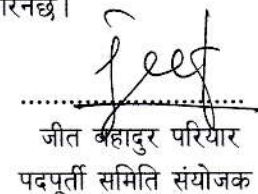 रिनेछ।
जीत बहादुर परियार
पदपूर्ती समिति संयोजक